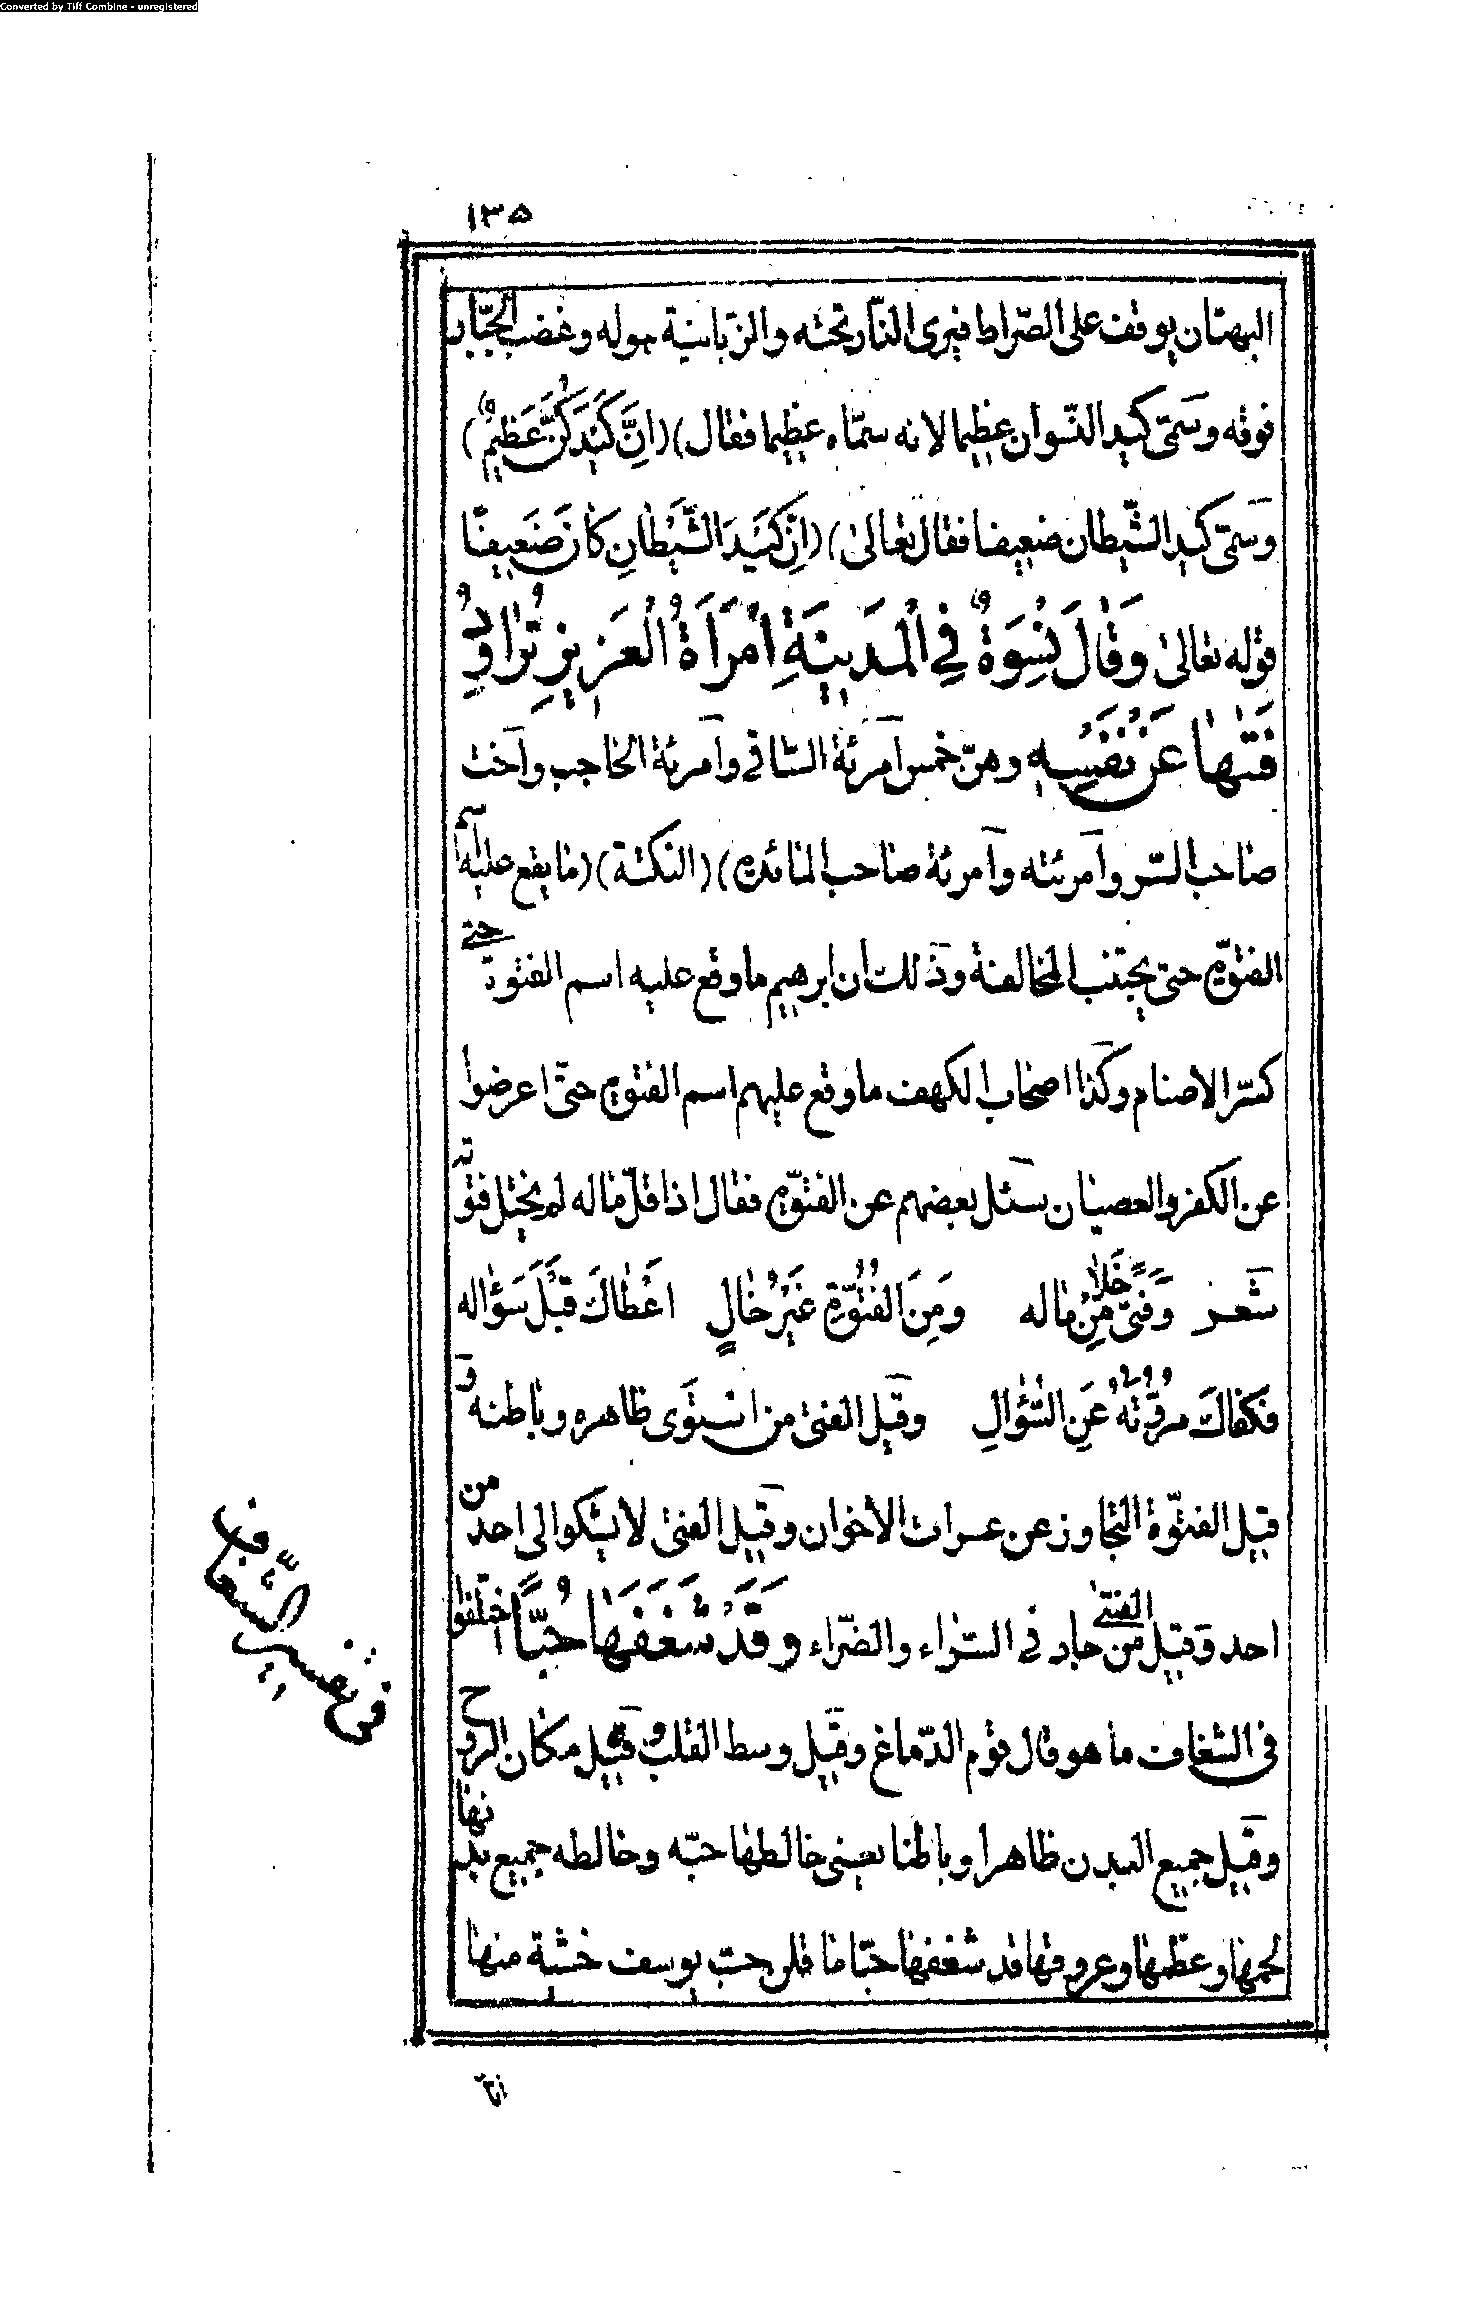 Converted by Tiff Combine - unregistered
١٣٥
البهتان يوقف على الصّراط فيرى النّار تحته والزّبانية حوله وغضب الجبّار
فوقه وسمّى كيد النّسوان عظيما لانه سمّاه عظيما فقال)(اِنَّ كَيْدَكُنَّ عَظِيمٌ)
وسمّى كيد الشّيطان ضعيفا فقال تعالى)(اِنَّ كَيْدَ الشَّيْطَانِ كَانَ ضَعِيفًا
قوله تعالى وَقَالَ نِسْوَةٌ فِي الْمَدِينَةِ امْرَاَةُ الْعَزِيزِ تُرَاوِدُ
فَتَٰهَا عَنْ نَفْسِهِ وهنّ خمس آمرئة السّاقى وآمرئة الحاجب وآخت
صاحب السّر وآمرئته وآمرئة صاحب المائدة)(النكتة)(ما يقع عليه اسم
الفتوّة حتى يجتنب المخالفة وذلك ان ابرهيم ما وقع عليه اسم الفتوة حتى
كسّر الاصنام وكذا اصحاب الكهف ما وقع عليهم اسم الفتوة حتّى اعرضوا
عن الكفر والعصيان سئل بعضهم عن الفتوّة فقال اذا قلّ ماله لم يختل فتوته
شعر وَفَتًى خَلَا مِنْ ماله وَمِنَ الفُتُوَّةِ غَيْرُ خَالٍ اَعْطَاكَ قَبْلَ سَؤاله
فكفاك مروّتهُ عَنِ السُّؤالِ وقيل الفتى من استوى ظاهره وباطنه و
قيل الفتوّة التجاوز عن عسرات الأخوان وقيل الفتى لا يشكوا الى احد من
احد وقيل الفتى من جاد فى السّراء والضرّاء وَقَدْ شَغَفَهَا حُبًّا اختلفوا
فى الشغاف ما هو قال قوم الدّماغ وقيل وسط القلب وقيل مكان الروح
وقيل جميع البدن ظاهرا وباطنا يعنى خالطها حبّه وخالطه جميع بدنها
لحمها وعظمها وعروقها قد شغفها حبّا ما قلن حبّ يوسف خشية منها
فى تفسير الشّغاف